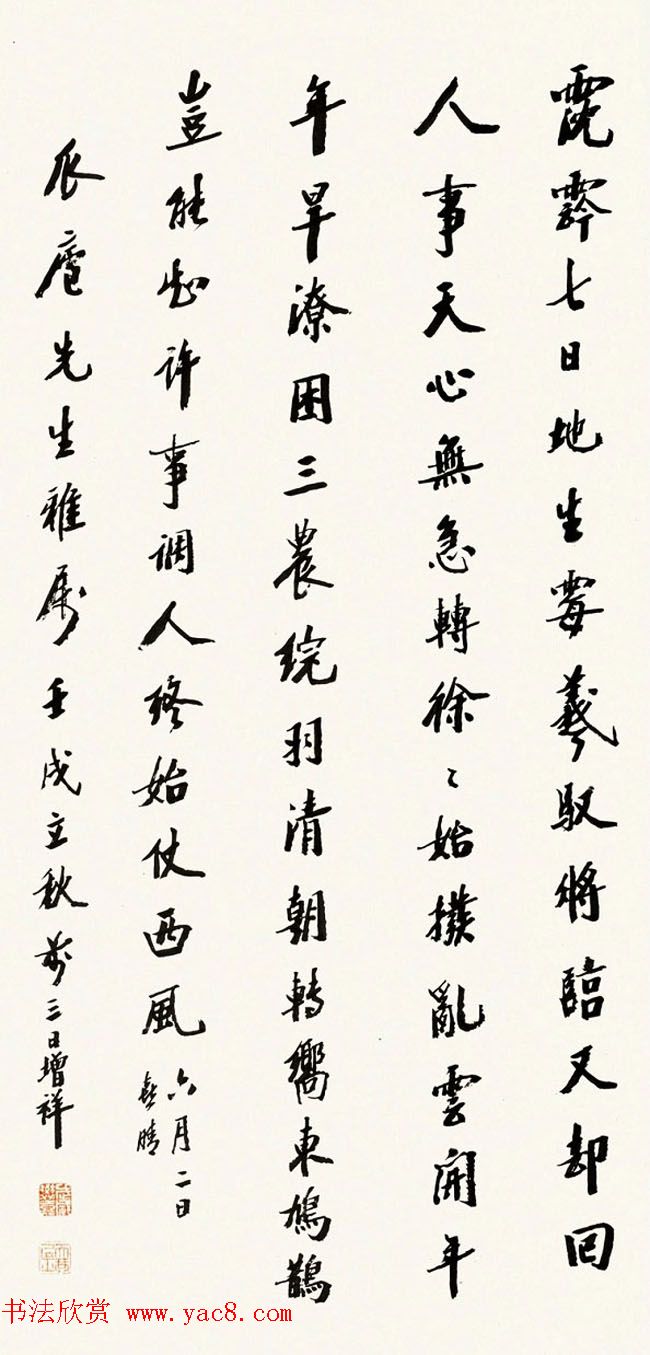 七日地生霉羲馭將臨又却回
人事天心無急轉徐〻始撥亂雲開年
年旱潦困三農綄羽清朝轉嚮東鳩鵲
豈能知許事調人終始仗西風
六月二日
喜晴
先生雅屬壬戌立秋前三日增祥
书法欣赏 www.yac8.com